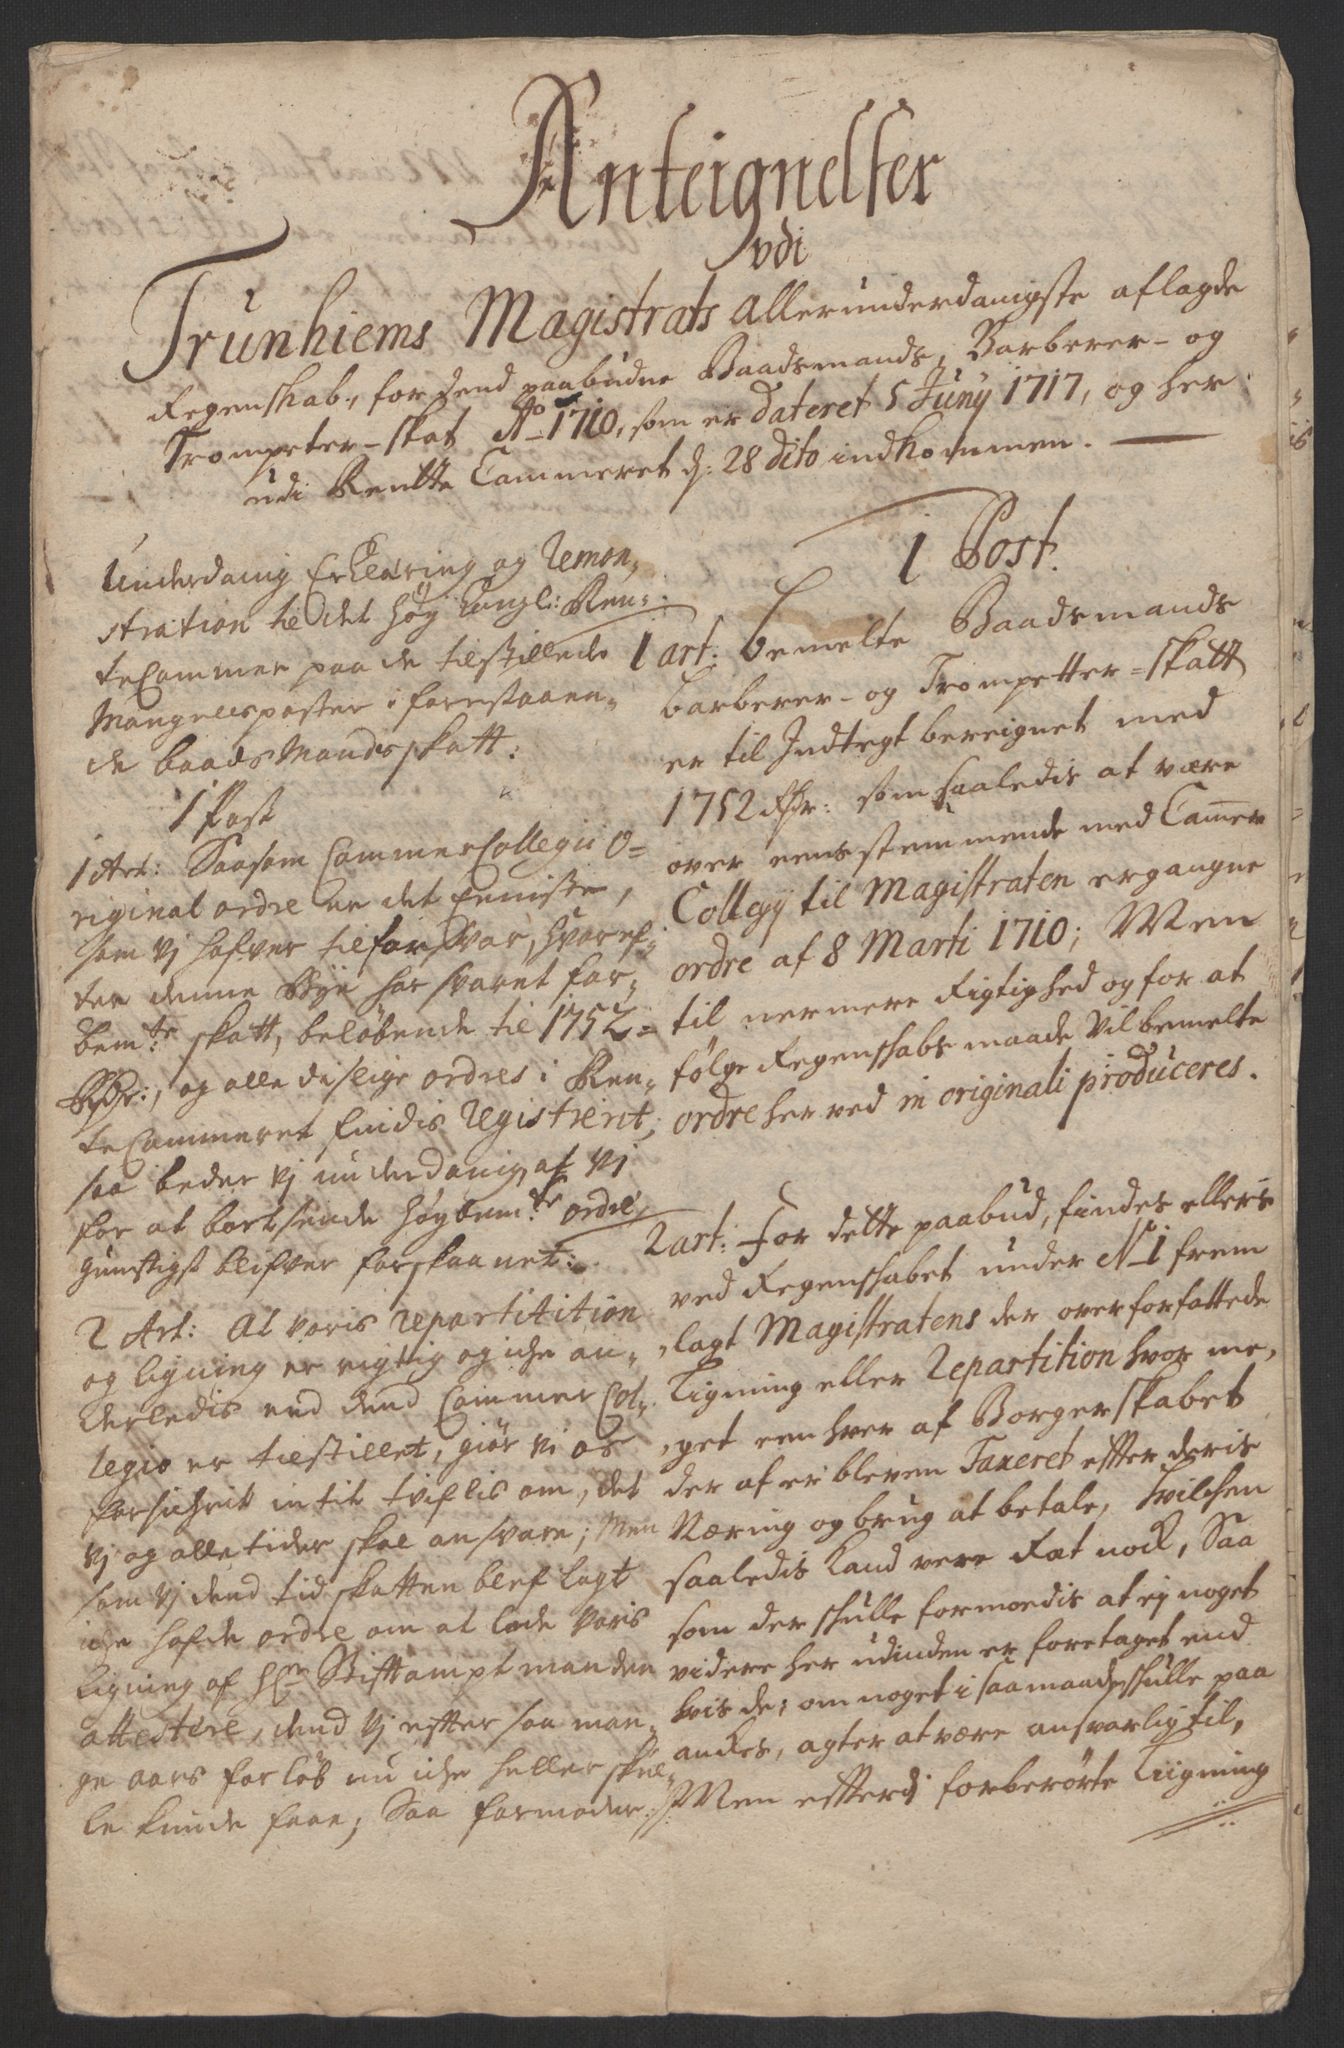 Anteignelser
udi
Trunhiems Magistrats allerunderdanigste aflagde
Regenskab, for dend paabudne Baadsmands, Barberer- og
Trompeter-skat Ao 1710, som er dateret 5 Juny 1717, og her
udi Rentte Cammeret d: 28 dito indkommen.
1 Post.
1 art: bemelte Baadsmands
barberer- og Trompetter-skatt
er til Indtegt bereignet med
1752 Rdr: som saaledis at være
over eensstemmende med Cammer
Collegij til Magistraten ergangne
ordre af 8 Marti 1710; Men
til nermere Rigtighed og for at
følge Regenskabs maade vil bemelte
ordre her ved in originali produceres.
2 art: For dette paabud, findes ellers
ved Regenskabet under No 1 frem
lagt Magistratens der over forfattede
Ligning eller Repartition hvor me,
,get een hver af Borgerskabet
der af er bleven Taxeret efter deris
Næring og brug at betale, hvilchen
saaledis kand vere Ræt nock, Saa
som der skulle formoedis at ej noget
videre her udinden er foretaget end
hvis de, om noget i saa maade skulle paa
anckes, agter at være ansvarlig til,
Men efterdj forberørte Liigning
Underdanig Erklæring og Remon,
stration til det høg Kongl: Ren-
teCammer paa de tilstillede
Mangelsposter i forestaaen-
de baadsMandsskatt:
1 Post
1 Art: Saasom CammerCollegii O-
riginal ordre er det eeniste,
som vj hafver til forsvar, hvoref-
ter denne Bye har svaret for-
bemte skatt, beløbende til 1752-
Rdr:, og alle deslige ordres i Ren-
teCammeret findis Registrerit,
saa beder vj underdanig, at vj
for at bortsende høgbemte ordre
gunstigst blifver forskaanet:
2 Art: At voris repartitition
og ligning er rigtig og iche an-
derledis end dend Cammer Col-
legio er tilstillet, giør vi os
forsichrit intit tviflis om, det
vj og alle tider skal ansvare; Men
som vj dend tid skatten blef lagt
iche hafde ordre om at lade voris
Ligning af Hr Stiftamptmanden
attestere, dend vj efter saa man-
ge aars forløb nu iche heller skul-
le kunde faae; Saa formoder